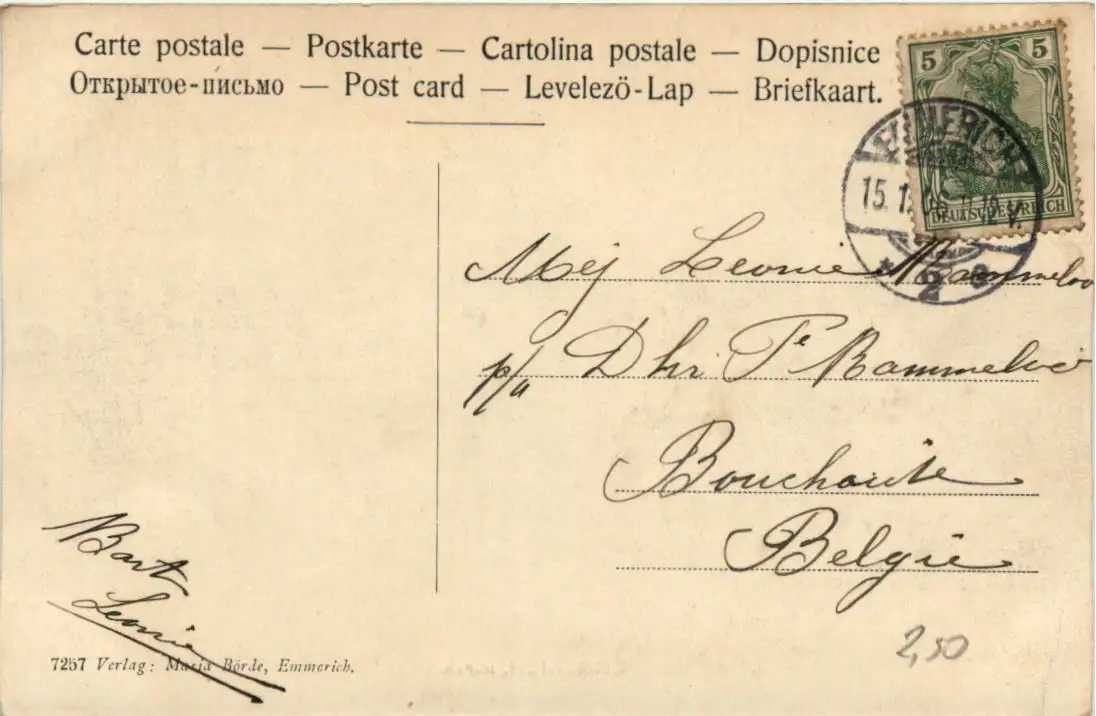 Carte postale — Postkarte — Cartolina postale — Dopisnice
Открытое-письмо — Post card — Levelezö-Lap — Briefkaart.
5 5
DEUTSCHES REICH
EMMERICH
15.1
V.
* 2 a
Mej Leonie Rammeloo
p/a Dhr Te Rammeloo
Bouchaute
Belgie
Bart
Leonie
7257 Verlag: Maria Börde, Emmerich.
2,50